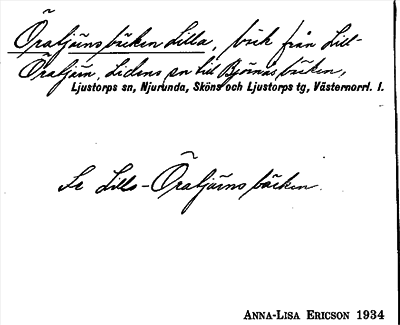 Öratjärnsbäcken Lilla, bäck från Lill-
Öratjärn, Lidens sn till Björnåsbäcken,
Ljustorps sn, Njurunda, Sköns och Ljustorps tg, Västernorrl. l.
Se Lill-Öratjärnsbäcken.
ANNA-LISA ERICSON 1934